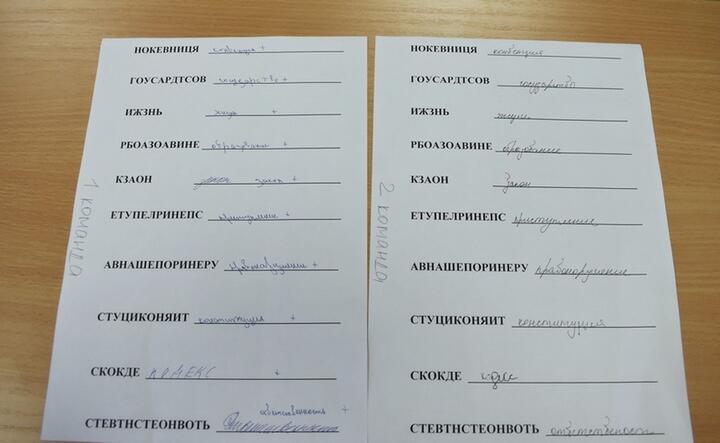 НОКЕВНИЦЯ конвенция +
ГОУСАРДТСОВ государство +
ИЖЗНЬ жизнь +
РБОАЗОАВИНЕ образование +
КЗАОН закон +
ЕТУПЕЛРИНЕПС +
АВНАШЕПОРИНЕРУ +
СТУЦИКОНЯИТ конституция +
СКОКДЕ КОДЕКС +
ответственность +
СТЕВТНСТЕОНВОТЬ
1 КОМАНДА
НОКЕВНИЦЯ конвенция
ГОУСАРДТСОВ государство
ИЖЗНЬ
РБОАЗОАВИНЕ образование
КЗАОН Закон
ЕТУПЕЛРИНЕПС приступление
АВНАШЕПОРИНЕРУ правонарушение
СТУЦИКОНЯИТ конституция
СКОКДЕ
СТЕВТНСТЕОНВОТЬ ответственость
2 КОМАНДА